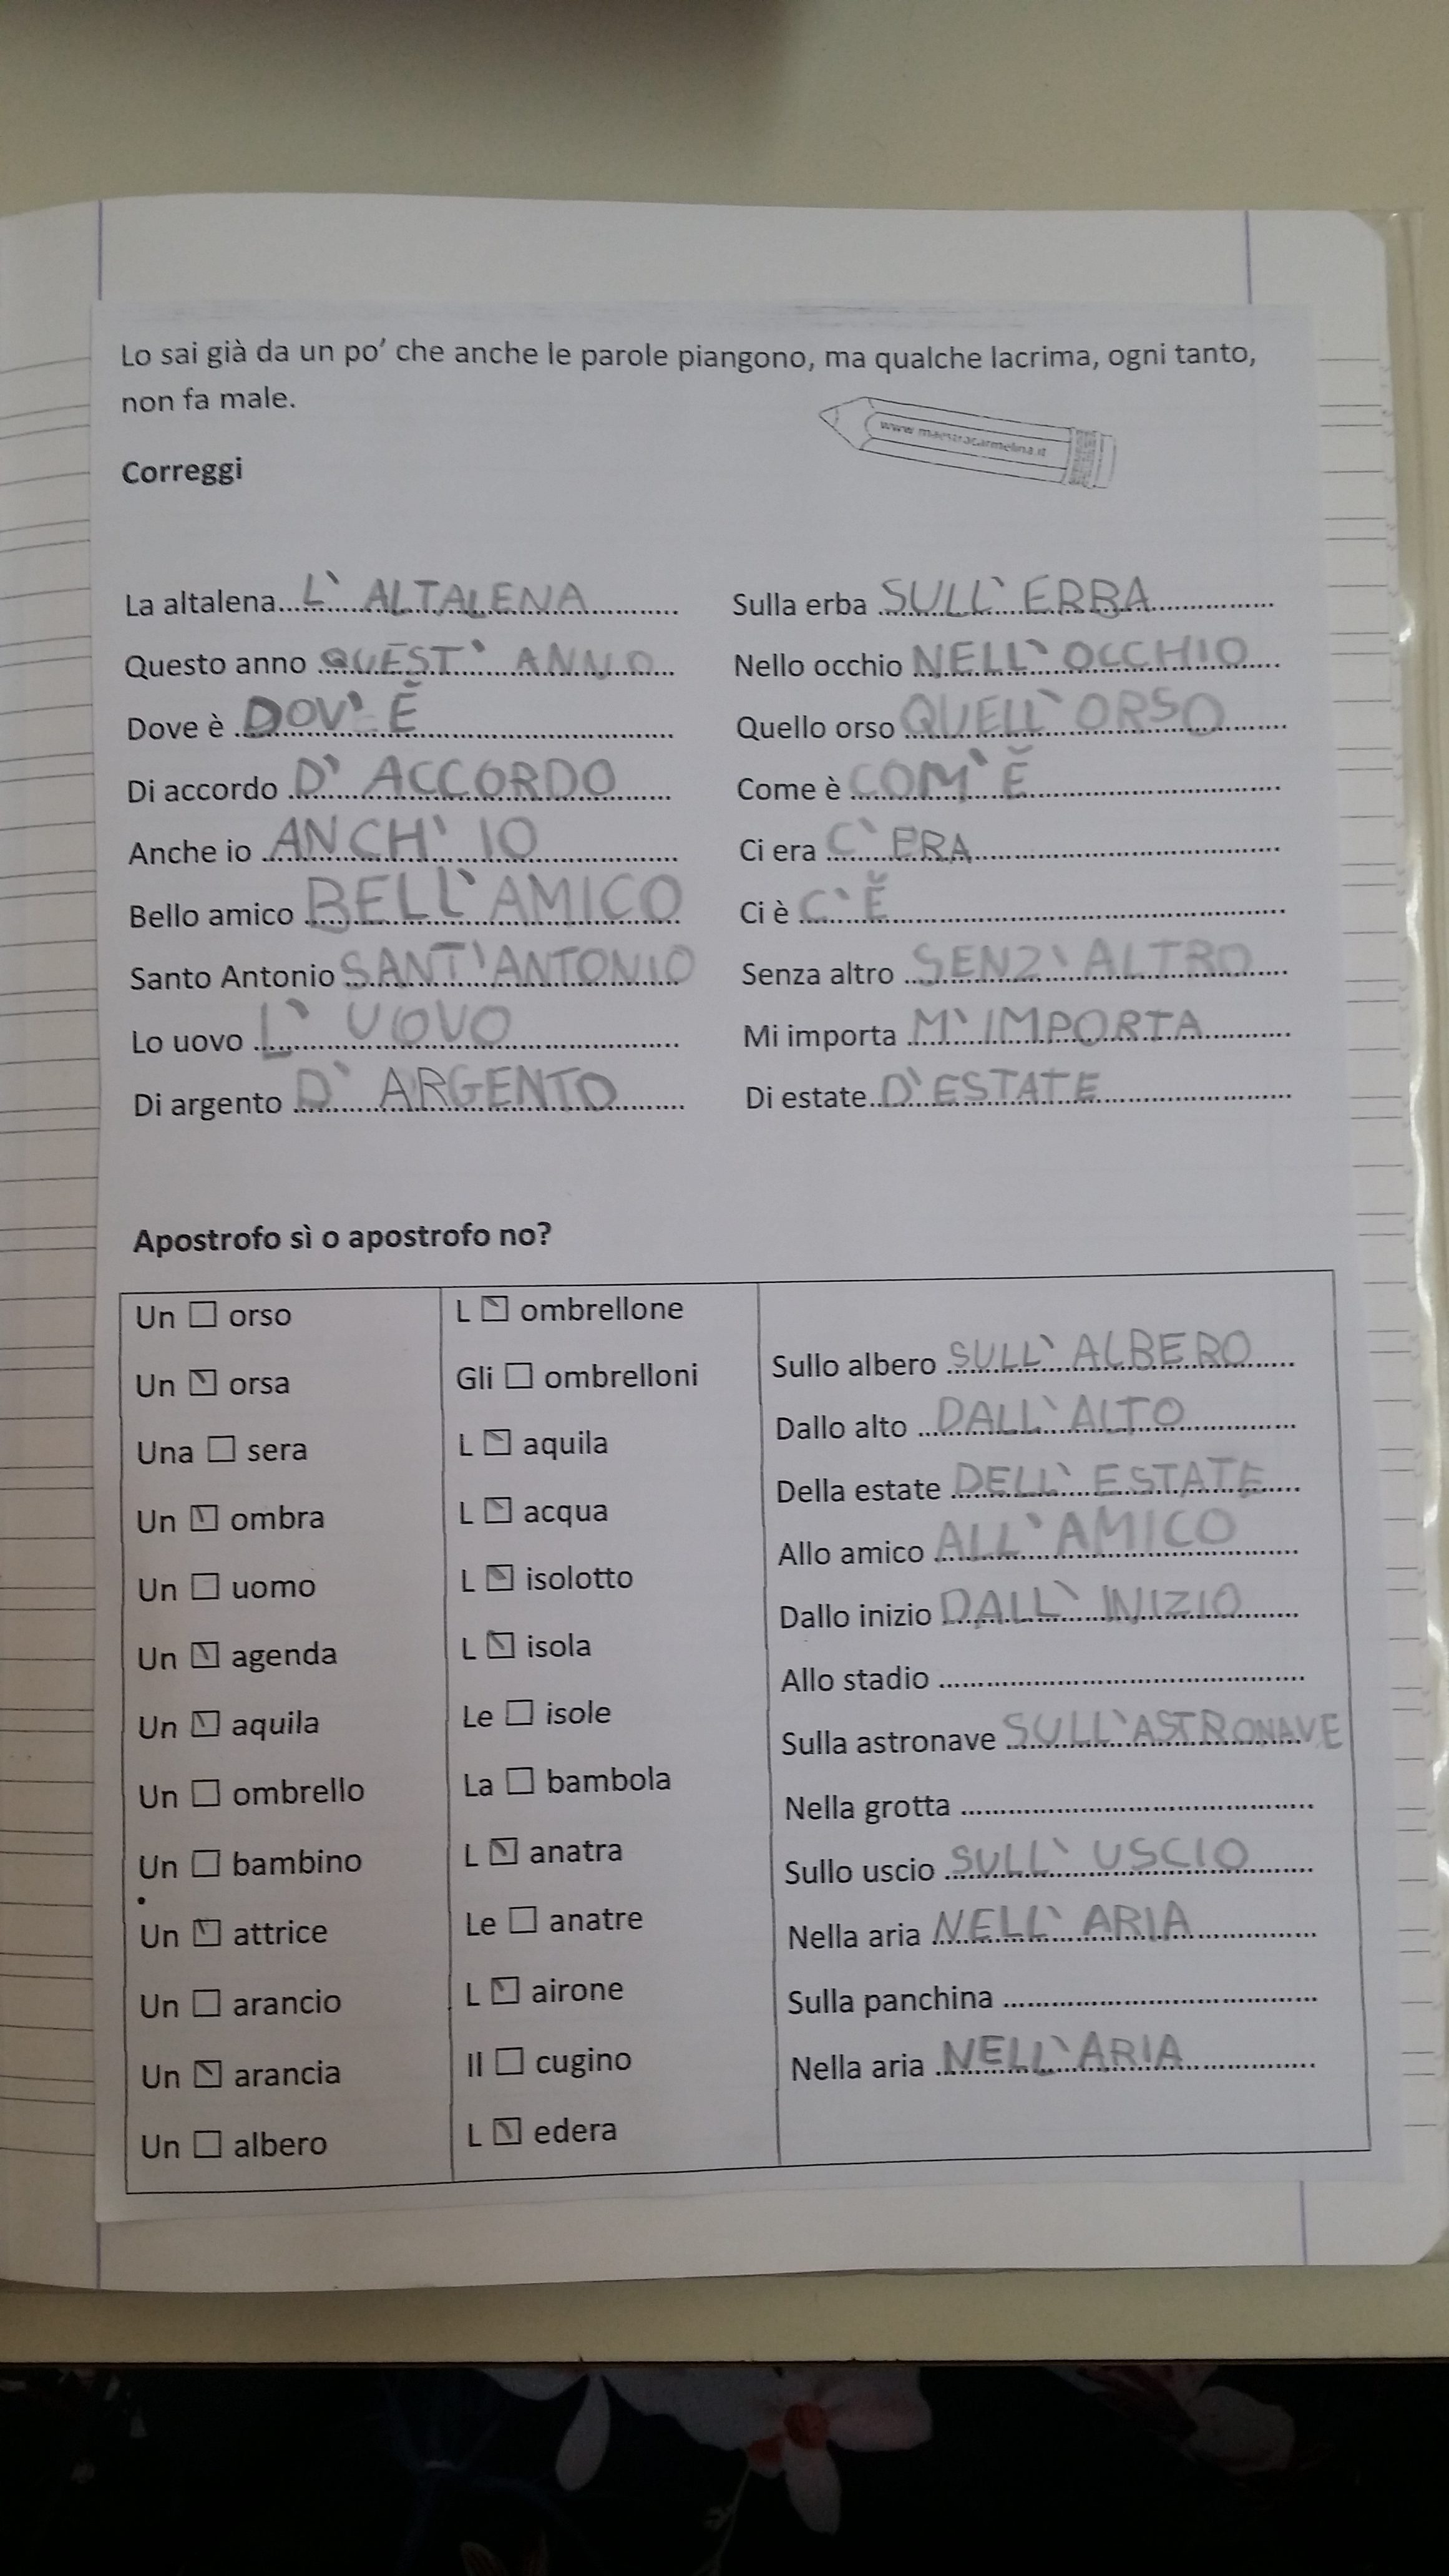 Lo sai già da un po’ che anche le parole piangono, ma qualche lacrima, ogni tanto,
non fa male.
www maestracarmelina.it
Correggi
La altalena... L' ALTALENA
Questo anno ... QUEST' ANNO
Dove è ... DOV' È
Di accordo ... D' ACCORDO
Anche io ... ANCH' IO
Bello amico ... BELL'AMICO
Santo Antonio ... SANT'ANTONIO
Lo uovo ... L' UOVO
Di argento ... D' ARGENTO
Sulla erba ... SULL' ERBA
Nello occhio ... NELL' OCCHIO
Quello orso ... QUELL' ORSO
Come è ... COM'È
Ci era ... C' ERA
Ci è ... C'È
Senza altro ... SENZ'ALTRO
Mi importa ... M'IMPORTA
Di estate... D'ESTATE
Apostrofo sì o apostrofo no?
Un ☐ orso
Un ' orsa
Una ☐ sera
Un ' ombra
Un ☐ uomo
Un ' agenda
Un ' aquila
Un ☐ ombrello
Un ☐ bambino
Un ' attrice
Un ☐ arancio
Un ' arancia
Un ☐ albero
L ' ombrellone
Gli ☐ ombrelloni
L ' aquila
L ' acqua
L ' isolotto
L ' isola
Le ☐ isole
La ☐ bambola
L ' anatra
Le ☐ anatre
L ' airone
Il ☐ cugino
L ' edera
Sullo albero ... SULL' ALBERO
Dallo alto ... DALL'ALTO
Della estate ... DELL' ESTATE
Allo amico ... ALL'AMICO
Dallo inizio ... DALL' INIZIO
Allo stadio ...
Sulla astronave ... SULL'ASTRONAVE
Nella grotta ...
Sullo uscio ... SULL' USCIO
Nella aria ... NELL' ARIA
Sulla panchina ...
Nella aria ... NELL'ARIA